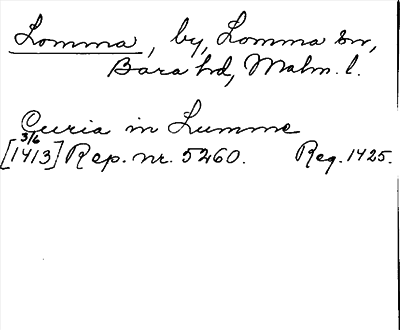 Lomma, by, Lomma sn,
Bara hd, Malm. l.
Curia in Lumme
3/6
[1413] Rep. nr. 5260. Reg. 1425.